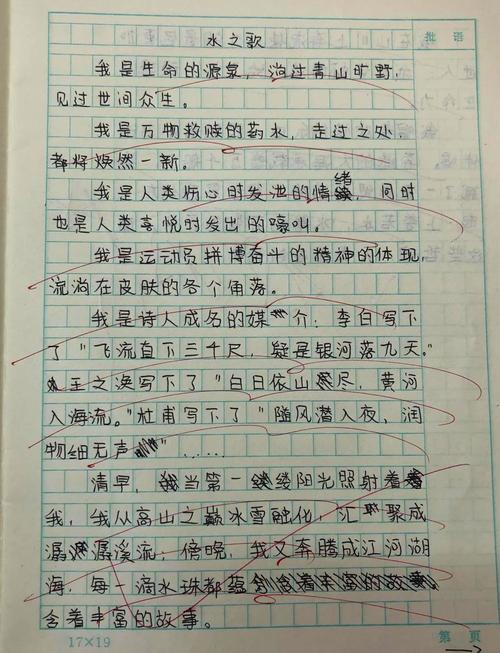 批 语
水之歌
我是生命的源泉，淌过青山旷野，
见过世间众生。
我是万物救赎的药水，走过之处，
都将焕然一新。
我是人类伤心时发泄的情绪，同时
也是人类喜悦时发出的嚎叫。
我是运动员拼博奋斗的精神的体现，
流淌在皮肤的各个角落。
我是诗人成名的媒介：李白写下
了"飞流直下三千尺，疑是银河落九天。"
王之涣写下了"白日依山尽，黄河
入海流。"杜甫写下了"随风潜入夜，润
物细无声"……
清早，当第一缕阳光照射着
我，我从高山之巅冰雪融化，汇聚成
潺潺溪流；傍晚，我又奔腾成江河湖
海，每一滴水珠都蕴
含着丰富的故事。
17×19
第 页